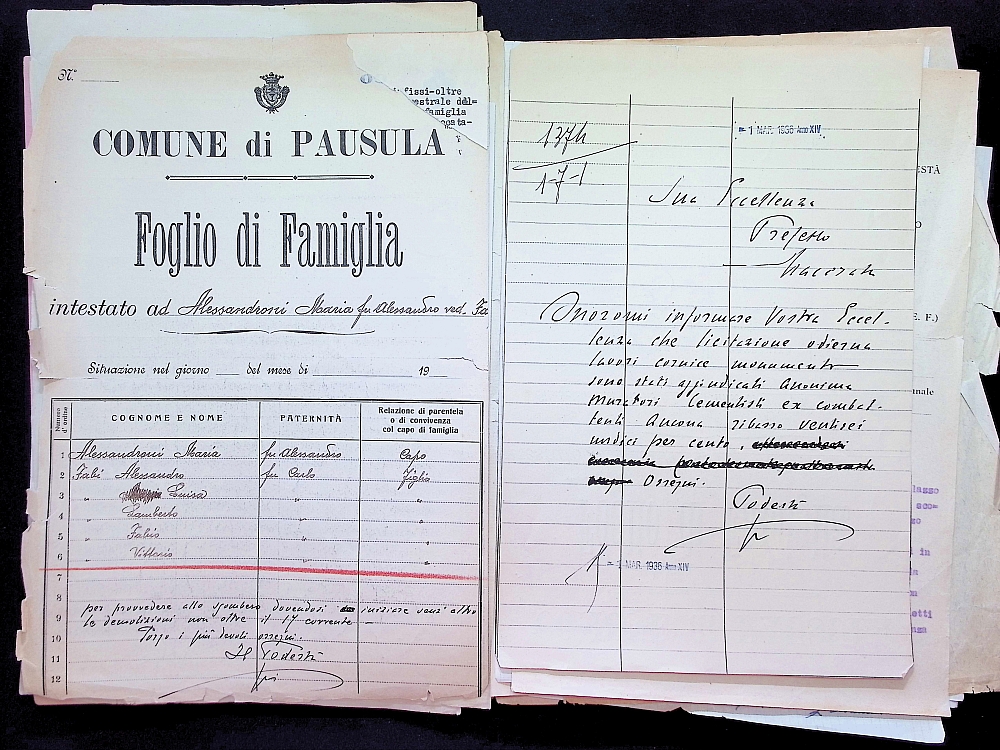 N.°
fissi-oltre
estrale del=
famiglia
COMUNE di PAUSULA
Foglio di Famiglia
intestato ad Alessandroni Maria fu Alessandro ved. Fa
Situazione nel giorno del mese di 19
Numero d'ordine
COGNOME E NOME
PATERNITÀ
Relazione di parentela
o di convivenza
col capo di famiglia
1 Alessandroni Maria fu Alessandro Capo
2 Fabi Alessandro fu Carlo figlio
3 " Luisa " "
4 " Lamberto " "
5 " Fabio " "
6 " Vittorio " "
7
8 per provvedere allo sgombero dovendosi iniziare senz'altro
9 le demolizioni non oltre il 17 corrente -
10 Porgo i più devoti ossequi.
11 Il Podestà
12
1374
1-7-1
- 1 MAR. 1936 Anno XIV
Sua Eccellenza
Prefetto
Macerata
Onoromi informare Vostra Eccel-
lenza che licitazione odierna
lavori cornice monumento
sono stati aggiudicati Anonima
Muratori Cementisti ex combat-
tenti Ancona ribasso ventisei
undici per cento.
Ossequi.
Podestà
- 1 MAR. 1936 Anno XIV
ESTÀ
O
E. F.)
nale
lasso
sco=
zo
in
la
otti
nza